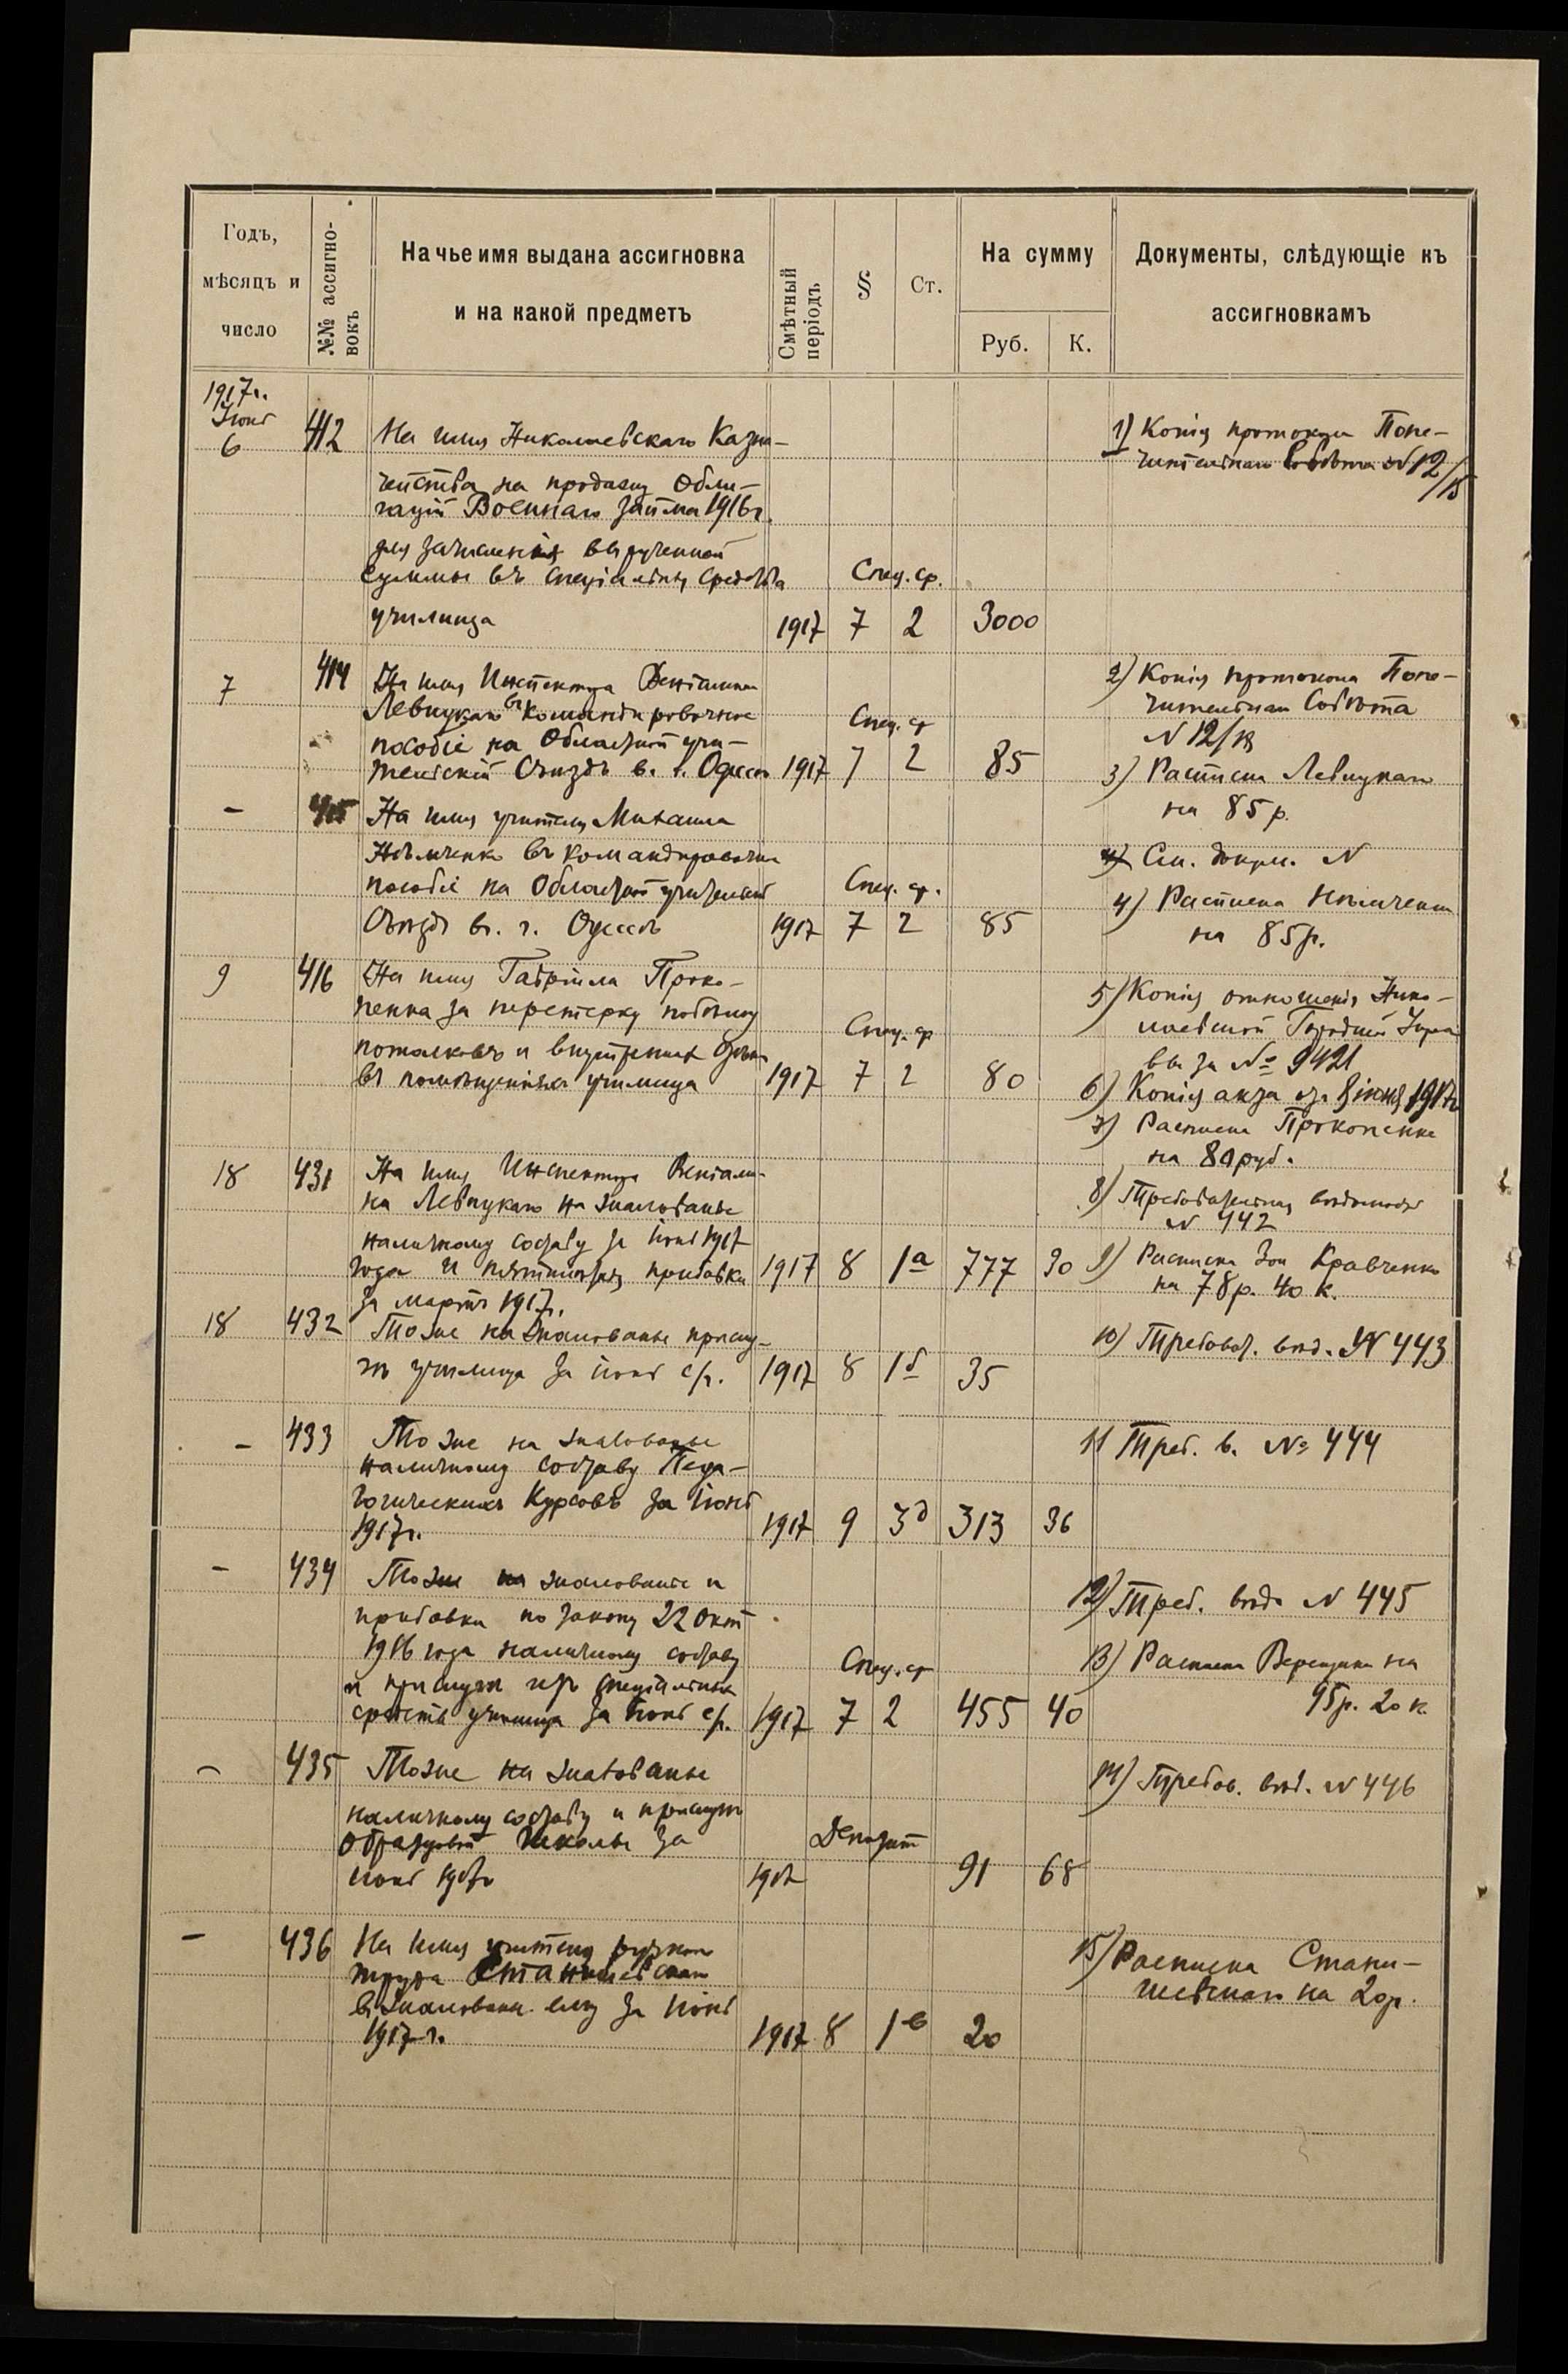 Годъ,
мѣсяцъ и
число
№№ ассигно-
вокъ
На чье имя выдана ассигновка
и на какой предметъ
Смѣтный
періодъ
§
Ст.
На сумму
Руб.
К.
Документы, слѣдующіе къ
ассигновкамъ
1917г.
Іюнь
6 412 На имя Николаевскаго Казна-
чейства на продажу Обли-
гацій Военнаго займа 1916г.
для зачисленія вырученной
суммы въ спеціальныя средства
Спец. ср.
училища 1917 7 2 3000
1) Копія протокола Попе-
чительнаго Совѣта №12/15
7 414 На имя Инспектора Веніамина
Левицкаго въ командировочное
Спец. ср
пособіе на Областной учи-
тельскій Съѣздъ в. г. Одессѣ 1917 7 2 85
2) Копія протокола Попе-
чительнаго Совѣта
N 12/
3) Расписка Левицкаго
на 85 р.
- 415 На имя учителя Михаила
Нѣмченко въ командировочное
пособіе на Областной учительскій
Спец. ср.
Съѣздъ в. г. Одессѣ 1917 7 2 85
4) См. докум. N
4) Расписка Нѣмченко
на 85р.
9 416 На имя Гавріила Проко-
пенка за перетерку побѣлку
Спец. ср
потолковъ и внутреннихъ
въ помѣщеніяхъ училища 1917 7 2 80
5) Копія отношенія Нико-
лаевской Городской Упра
вы за № 9421
6) Копія акта за 8 іюня 1917г
7) Расписка Прокопенко
на 80 руб.
18 431 На имя Инспектора Веніами-
на Левицкаго на жалованье
наличному составу за іюнь 1917
года и пятилѣтняя прибавка 1917 8 1а 777 30
за мартъ 1917г.
8) Требовательная вѣдомость
N 442
9) Расписка Кравченко
на 78р. 40 к.
18 432 Тоже на жалованье прислу-
гѣ училища за іюнь с/г. 1917 8 1б 35
10) Требоват. вѣд. N 443
- 433 То же на жалованье
наличному составу Педа-
гогическихъ Курсовъ за іюнь
1917г. 1917 9 3д 313 36
11 Треб. в. № 444
- 434 Тоже на жалованье и
прибавки по закону 22 Окт
1916 года наличному составу
Спец. ср
и прислуги изъ спеціальныхъ
средствъ училища за іюнь с/г. 1917 7 2 455 40
12) Треб. вѣд. N 445
13) Расписка Верещаки на
95р. 20 к.
- 435 Тоже на жалованье
наличному составу и прислугѣ
Образцовой школы за
Депозит
іюнь 1917г 1917 91 68
14) Требов. вѣд. N 446
- 436 На имя учителя ручного
труда Станишевскаго
в жалованье ему за іюнь
1917 г. 1917 8 1в 20
15) Расписка Стани-
шевскаго на 20р.